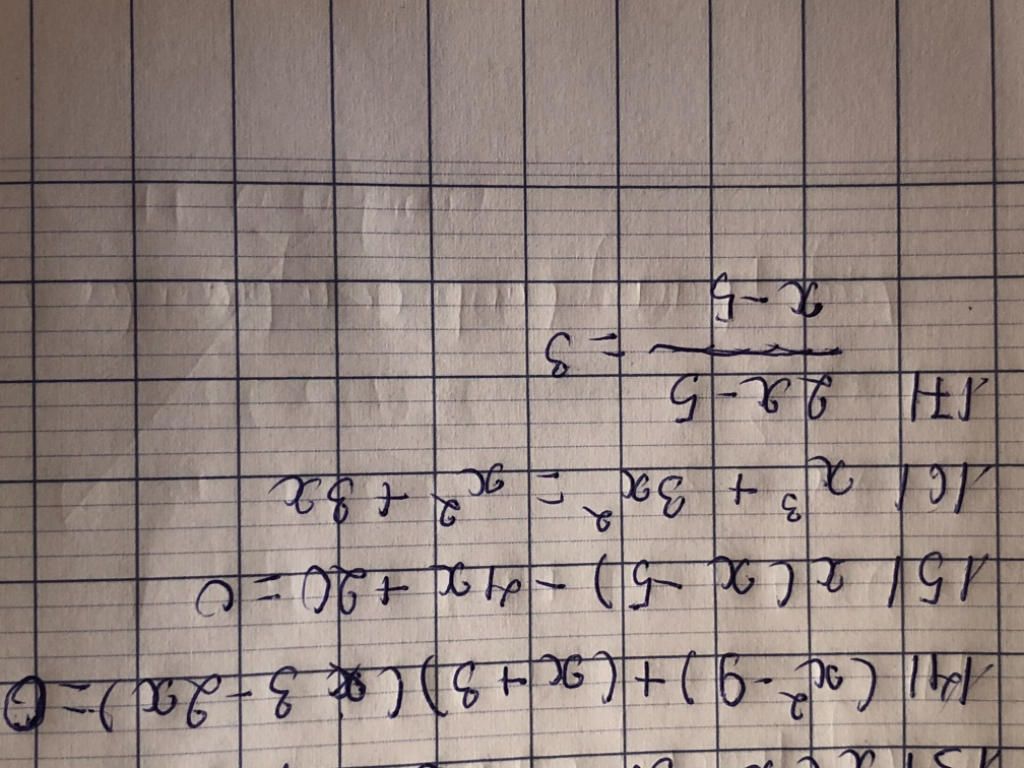 14) (x²-9)+(x+3)(x 3-2x)=0
15) x(x-5)-4x+20=0
16) x³+3x²=x²+3x
17) 2x-5
= 3
x-5